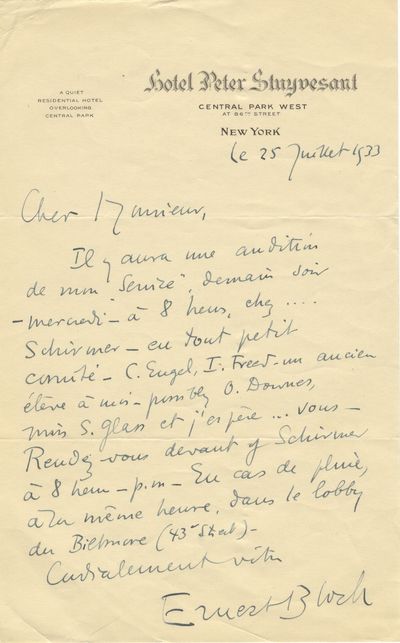 A QUIET
RESIDENTIAL HOTEL
OVERLOOKING
CENTRAL PARK
Hotel Peter Stuyvesant
CENTRAL PARK WEST
AT 86TH STREET
NEW YORK
le 25 Juillet 1933
Cher Monsieur,
Il y aura une audition
de mon "Service", demain soir
-mercredi- à 8 heures, chez ....
Schirmer - en tout petit
comité - C. Engel, I. Freed - un ancien
élève à moi - possibly O. Downes,
miss S. Glass et j'espère ... vous -
Rendez-vous devant Schirmer
à 8 heures - p.m - En cas de pluie,
à la même heure, dans le lobby
du Biltmore (43d Street) -
Cordialement vôtre
Ernest Bloch